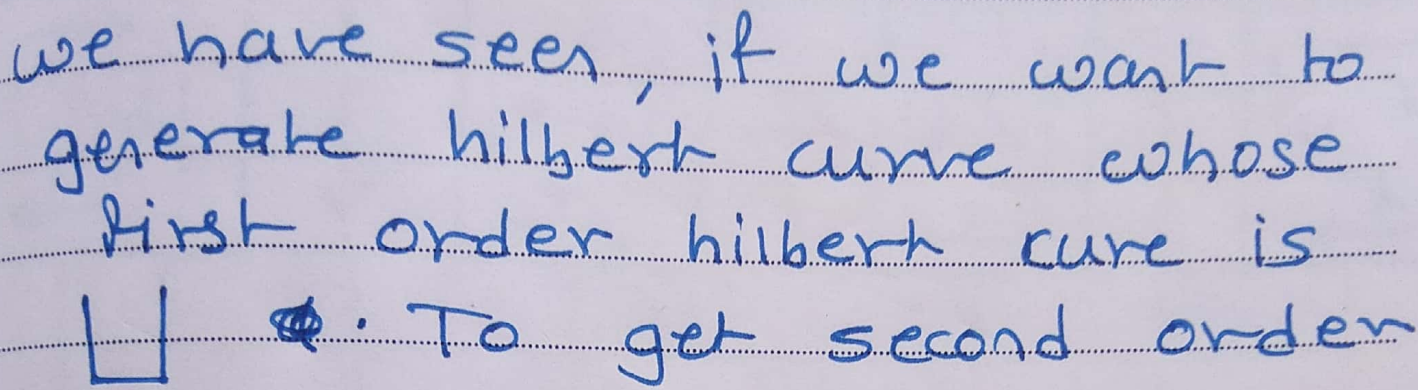 we have seen, if we want to
generate hilbert curve whose
first order hilbert cure is
. To get second order